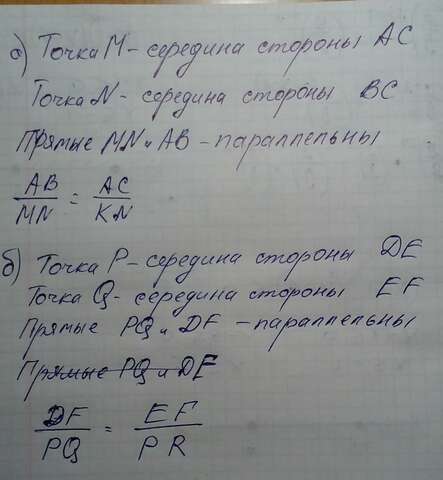 а) Точка М - середина стороны АС
Точка N - середина стороны ВС
Прямые MN и АВ - параллельны
AB/MN = AC/KN
б) Точка Р - середина стороны DE
Точка Q - середина стороны EF
Прямые PQ и DF - параллельны
Прямые PQ и DF
DF/PQ = EF/PR